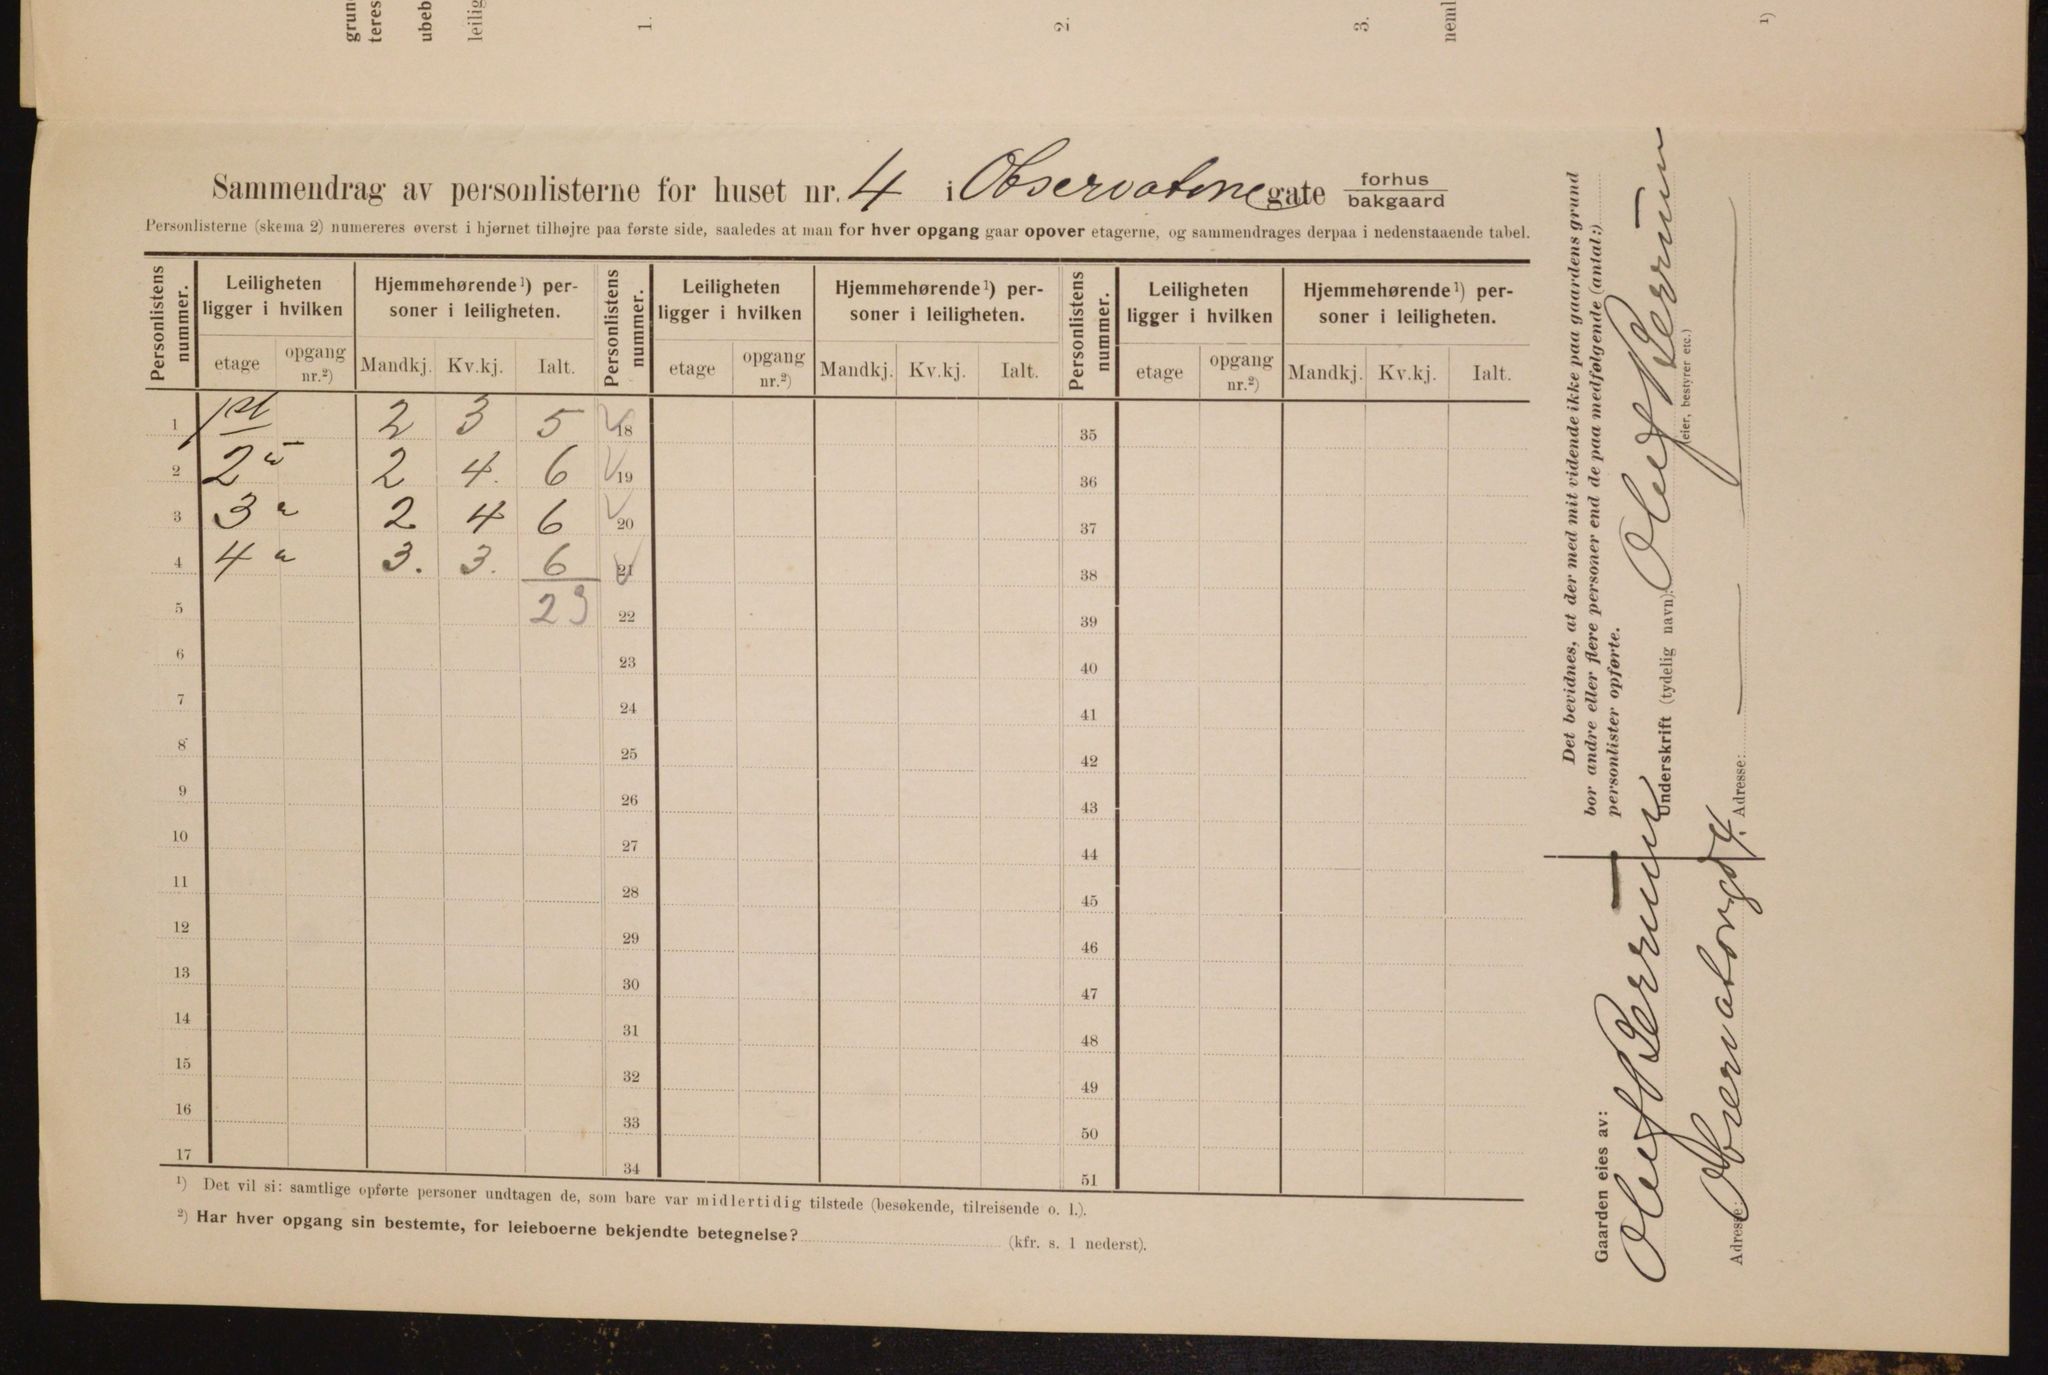 grun
teres
ubeb
leilig
1.
2.
3.
neml
1)
Sammendrag av personlisterne for huset nr. 4 i Observatorie gate forhus bakgaard
Personlisterne (skema 2) numereres øverst i hjørnet tilhøjre paa første side, saaledes at man for hver opgang gaar opover etagerne, og sammendrages derpaa i nedenstaaende tabel.
Personlistens nummer. Leiligheten ligger i hvilken Hjemmehørende¹) personer i leiligheten. Personlistens nummer. Leiligheten ligger i hvilken Hjemmehørende¹) personer i leiligheten. Personlistens nummer. Leiligheten ligger i hvilken Hjemmehørende¹) personer i leiligheten.
etage opgang nr.²) Mandkj. Kv.kj. Ialt. etage opgang nr.²) Mandkj. Kv.kj. Ialt. etage opgang nr.²) Mandkj. Kv.kj. Ialt.
1 1st 2 3 5 18 35
2 2 " 2 4. 6 19 36
3 3 " 2 4 6 20 37
4 4 " 3. 3. 6 21 38
5 23 22 39
6 23 40
7 24 41
8 25 42
9 26 43
10 27 44
11 28 45
12 29 46
13 30 47
14 31 48
15 32 49
16 33 50
17 34 51
¹) Det vil si: samtlige opførte personer undtagen de, som bare var midlertidig tilstede (besøkende, tilreisende o. l.).
²) Har hver opgang sin bestemte, for leieboerne bekjendte betegnelse? (kfr. s. 1 nederst).
Det bevidnes, at der med mit vidende ikke paa gaardens grund
bor andre eller flere personer end de paa medfølgende (antal:)
personlister opførte.
Underskrift (tydelig navn): Oluf
(eier, bestyrer etc.)
Adresse:
Gaarden eies av:
Oluf
Adresse: Observatorgd 4.